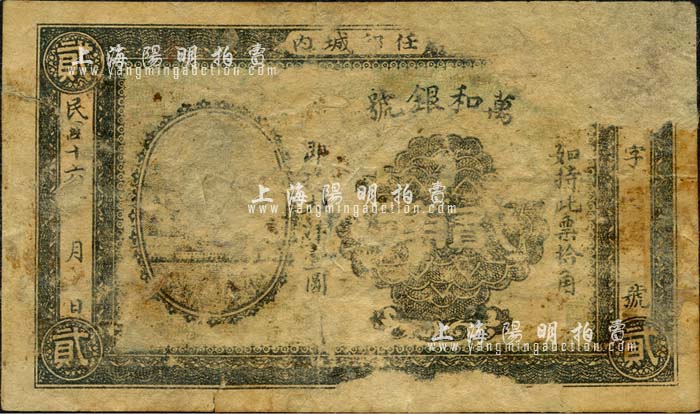 任邱城内
萬和銀號
字 號
如持此票拾角
貳角
即 洋壹圓
民國十六 月 日
貳
貳
貳
上海陽明拍賣
www.yangmingauction.com
上海陽明拍賣
www.yangmingauction.com
上海陽明拍賣
www.yangmingauction.com